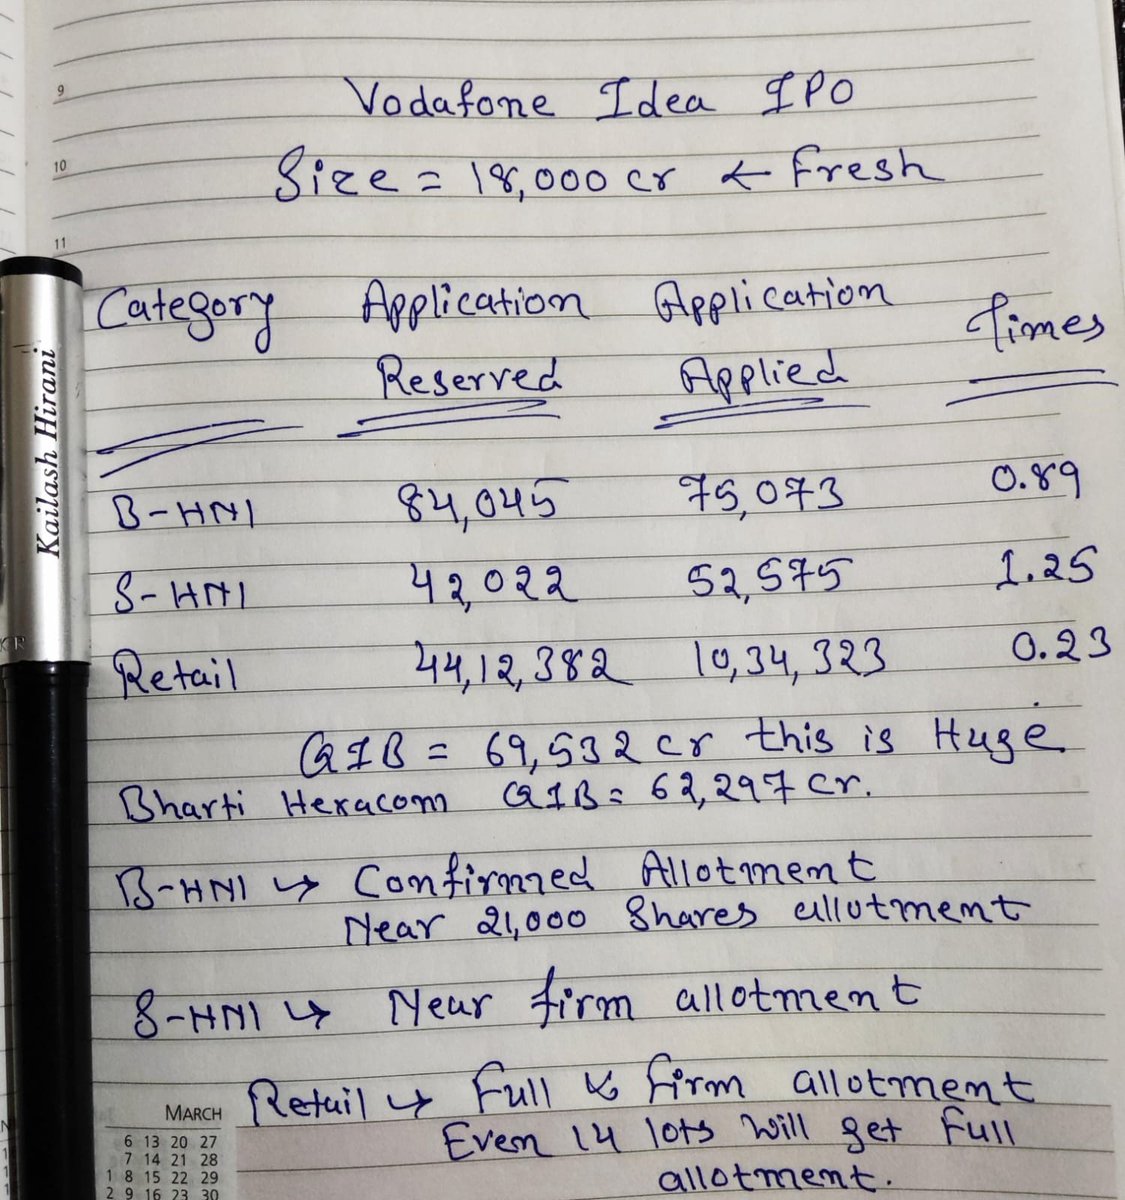 9
Vodafone Idea IPO
10
Size = 18,000 cr ← Fresh
11
Category Application Application Times
Reserved Applied
B-HNI 84,045 75,073 0.89
S-HNI 42,022 52,575 1.25
Retail 44,12,382 10,34,323 0.23
QIB = 69,532 cr this is Huge
Bharti Hexacom QIB = 62,297 cr.
B-HNI ↪ Confirmed Allotment
Near 21,000 Shares allotment
S-HNI ↪ Near firm allotment
Retail ↪ Full & Firm allotment
Even 14 lots will get Full
allotment.
Kailash Hirani
MARCH
6 13 20 27
7 14 21 28
1 8 15 22 29
2 9 16 23 30